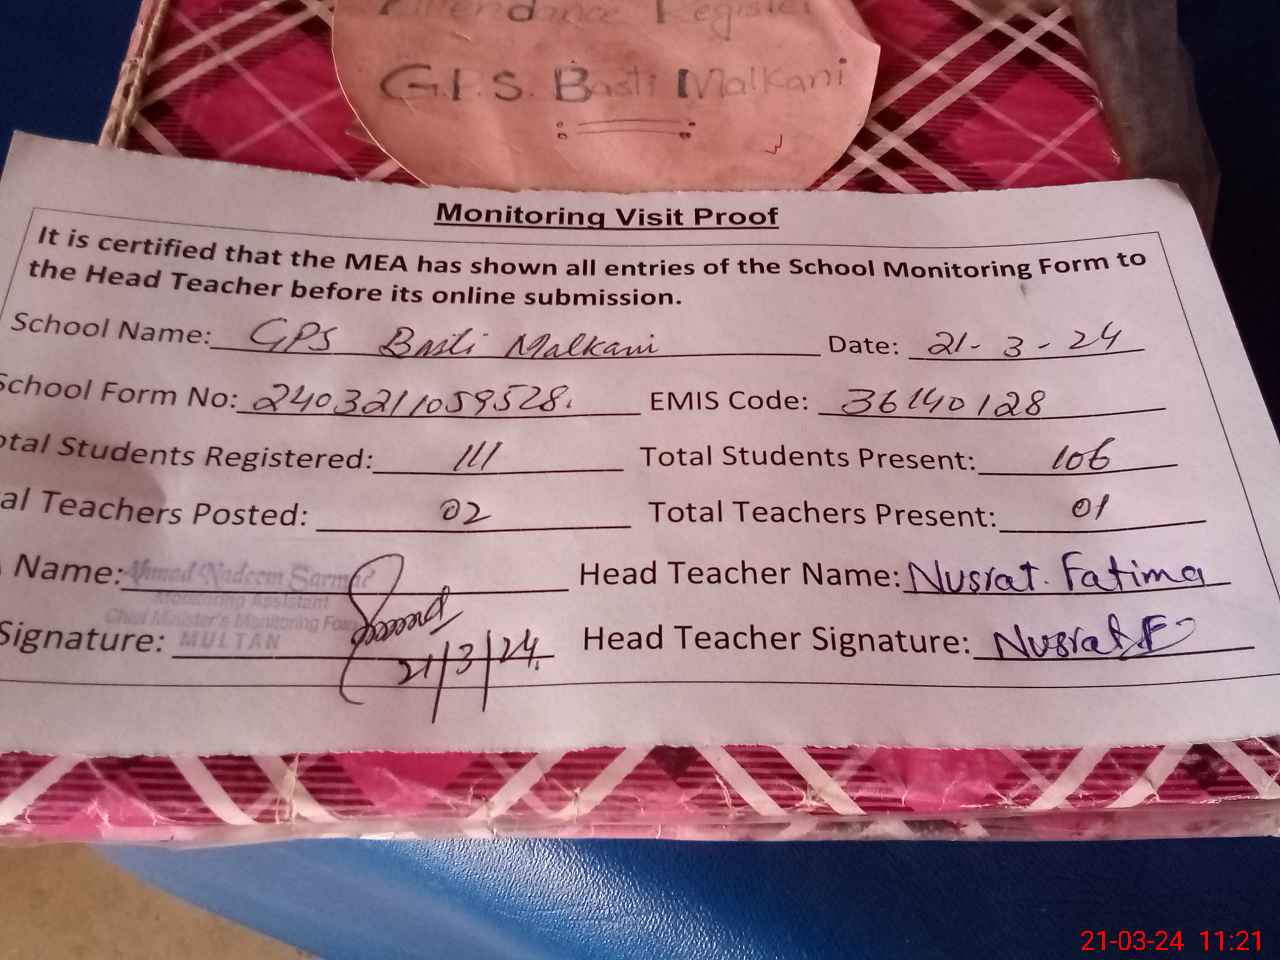 Attendance Register
G.P.S. Basti Malkani
Monitoring Visit Proof
It is certified that the MEA has shown all entries of the School Monitoring Form to
the Head Teacher before its online submission.
School Name: GPS Basti Malkani Date: 21-3-24
School Form No: 2403211059528. EMIS Code: 36140128
otal Students Registered: 111 Total Students Present: 106
al Teachers Posted: 02 Total Teachers Present: 01
Name: Ahmed Nadeem Head Teacher Name: Nusrat. Fatima
Monitoring Assistant
Chief Minister's Monitoring
Signature: MULTAN 21/3/24. Head Teacher Signature: Nusrat F
21-03-24 11:21